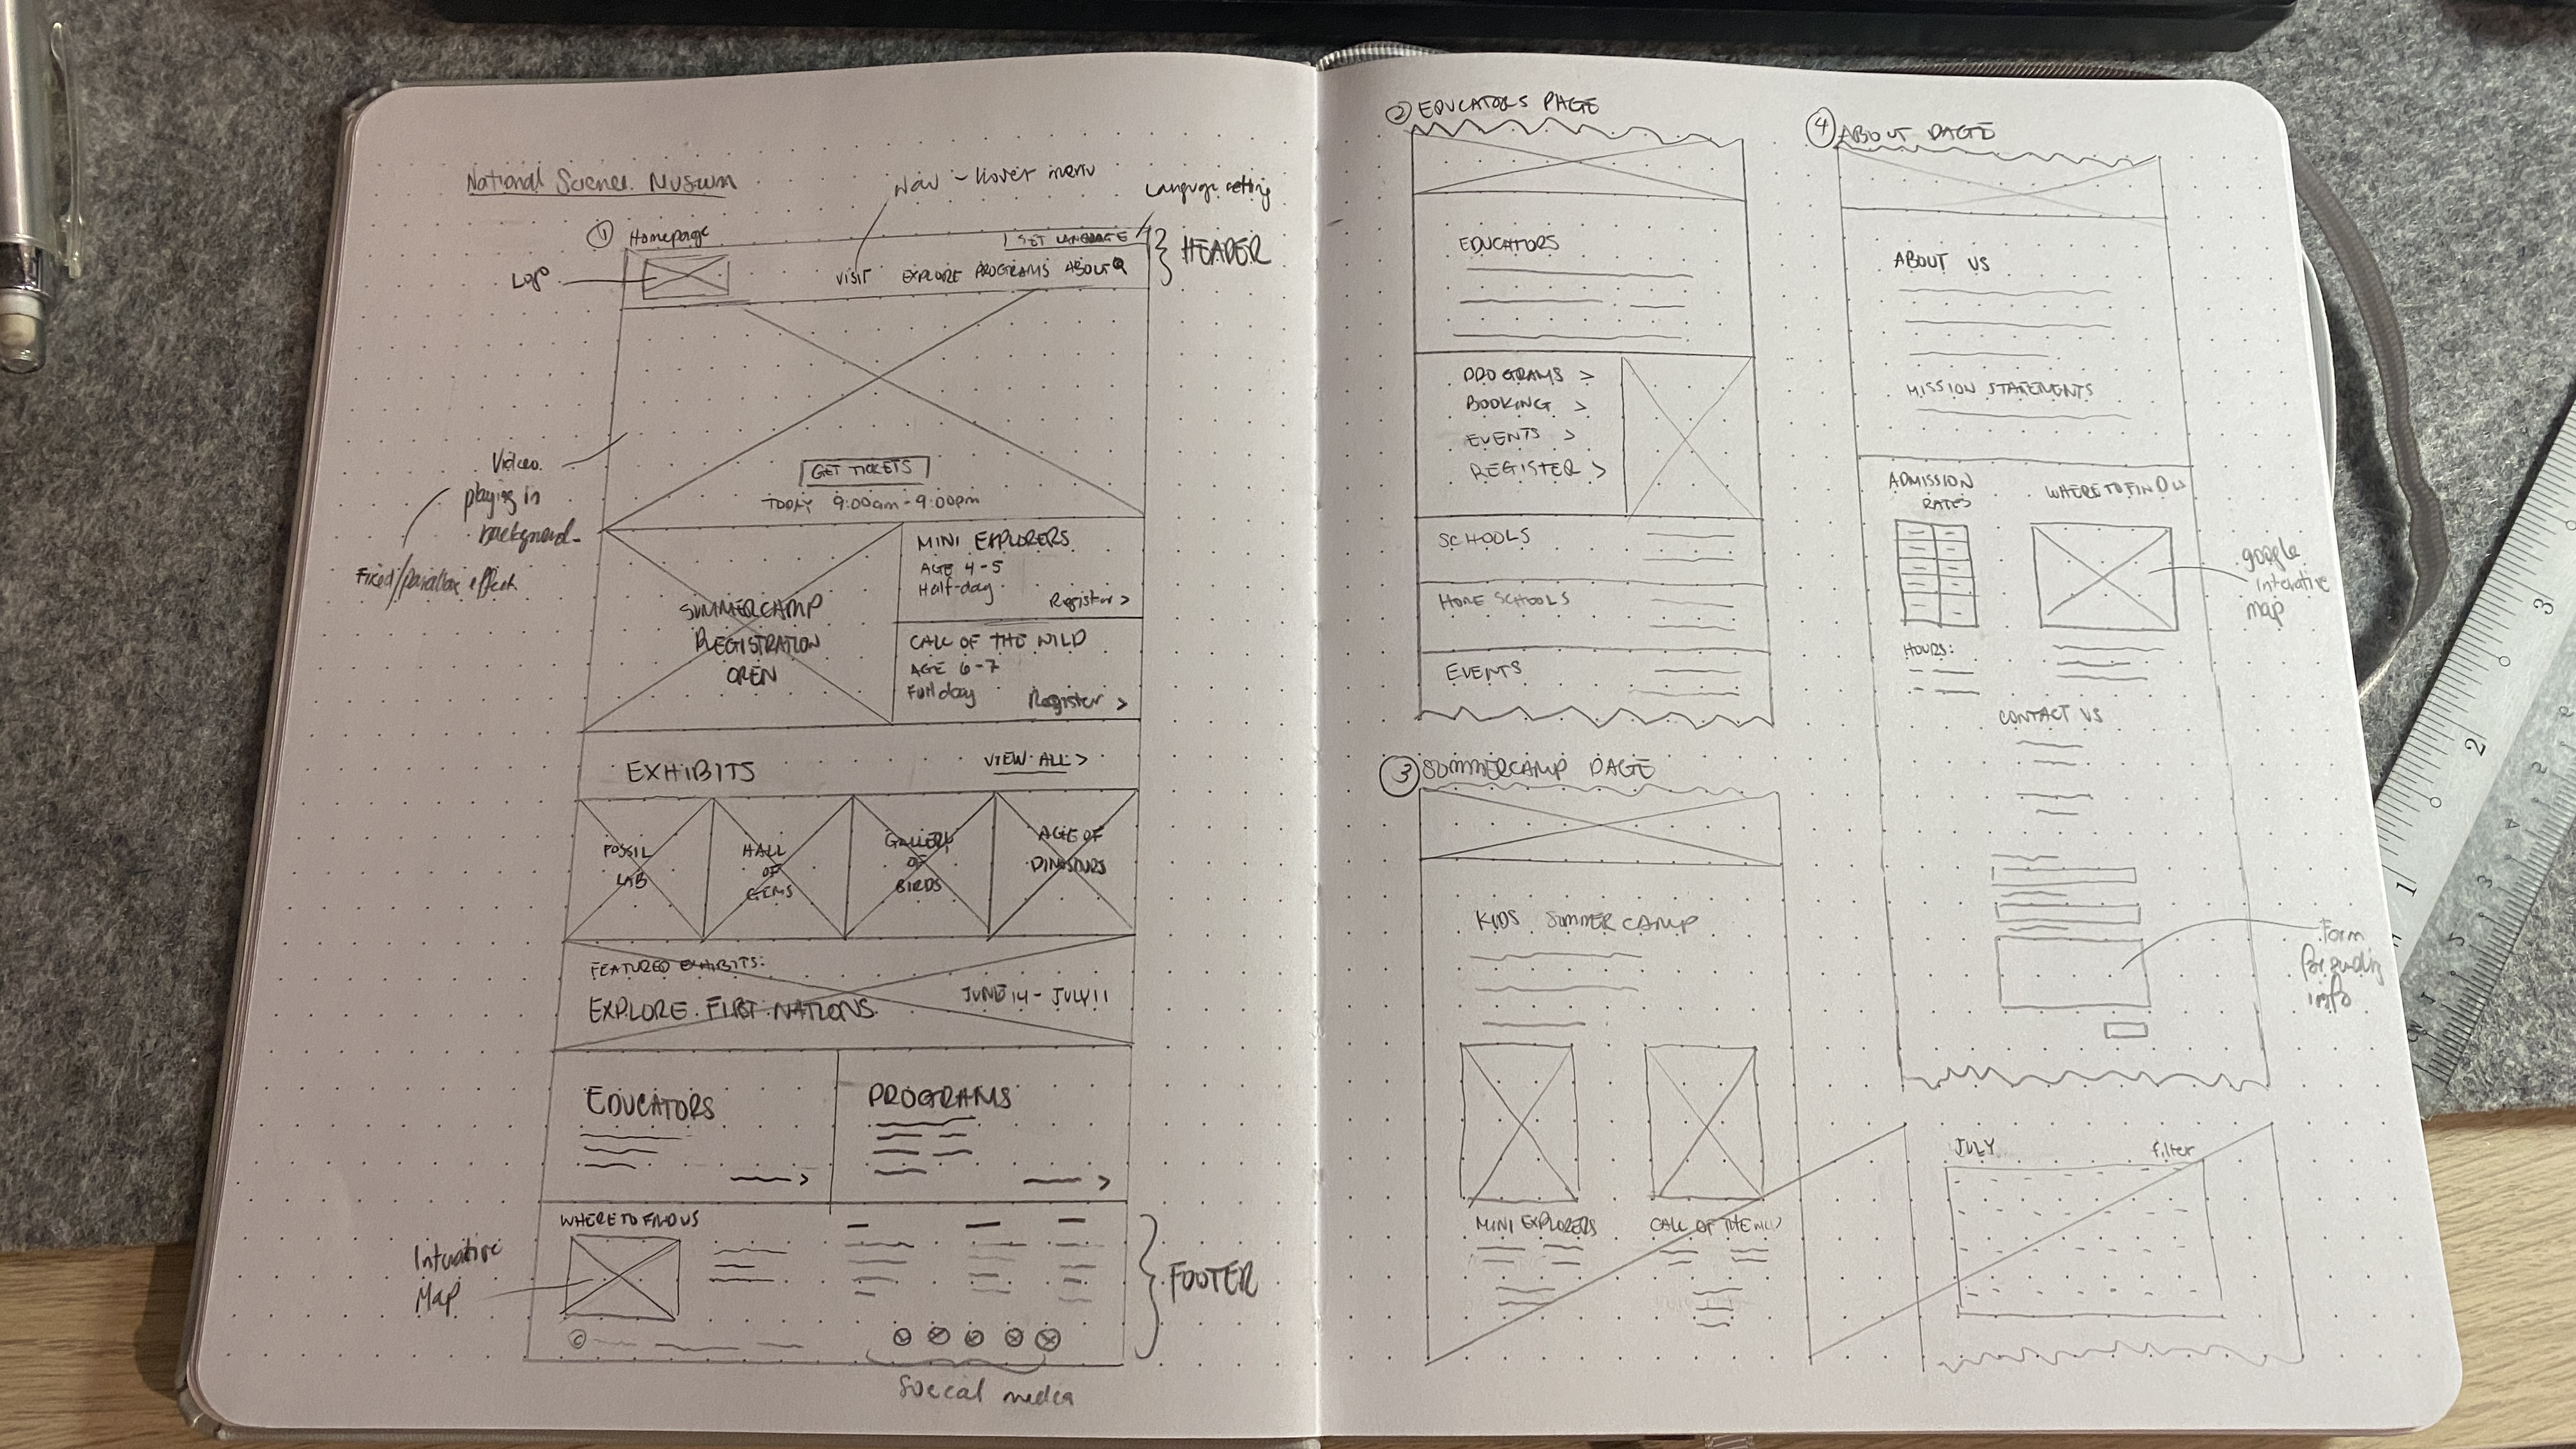 National Science Museum
Nav - hover menu
Language setting
① Homepage
SET LANGUAGE
HEADER
Logo
VISIT EXPLORE PROGRAMS ABOUT
Video
playing in
background
Fixed/parallax effect
GET TICKETS
TODAY 9:00am - 9:00pm
SUMMERCAMP
REGISTRATION
OPEN
MINI EXPLORERS
AGE 4-5
Half-day
Register >
CALL OF THE WILD
AGE 6-7
Full day
Register >
EXHIBITS
VIEW ALL >
FOSSIL
LAB
HALL
OF
GEMS
GALLERY
OF
BIRDS
AGE OF
DINOSAURS
FEATURED EXHIBITS:
EXPLORE FIRST NATIONS
JUNE 14 - JULY 11
EDUCATORS
>
PROGRAMS
>
WHERE TO FIND US
Interative
Map
FOOTER
©
Soccal media
② EDUCATORS PAGE
EDUCATORS
PROGRAMS >
BOOKING >
EVENTS >
REGISTER >
SCHOOLS
HOME SCHOOLS
EVENTS
③ SUMMERCAMP PAGE
KIDS SUMMER CAMP
MINI EXPLORERS
CALL OF THE WILD
④ ABOUT PAGE
ABOUT US
MISSION STATEMENTS
ADMISSION
RATES
WHERE TO FIND US
google
interative
map
HOURS:
CONTACT US
Form
for sending
info
JULY
filter
3
2
1